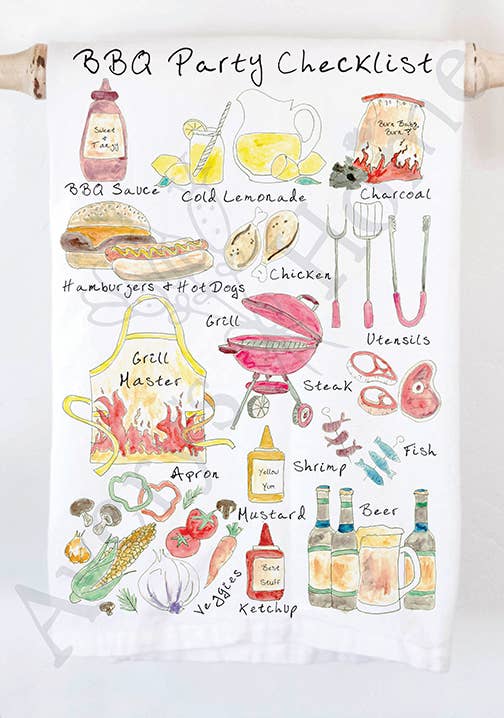 BBQ Party Checklist
Sweet
&
Tangy
BBQ Sauce
Cold Lemonade
Burn Baby,
Burn!
Charcoal
Hamburgers & Hot Dogs
Chicken
Utensils
Grill
Grill
Master
Apron
Steak
Shrimp
Fish
Yellow
Yum
Mustard
Beer
Veggies
Best
Stuff
Ketchup